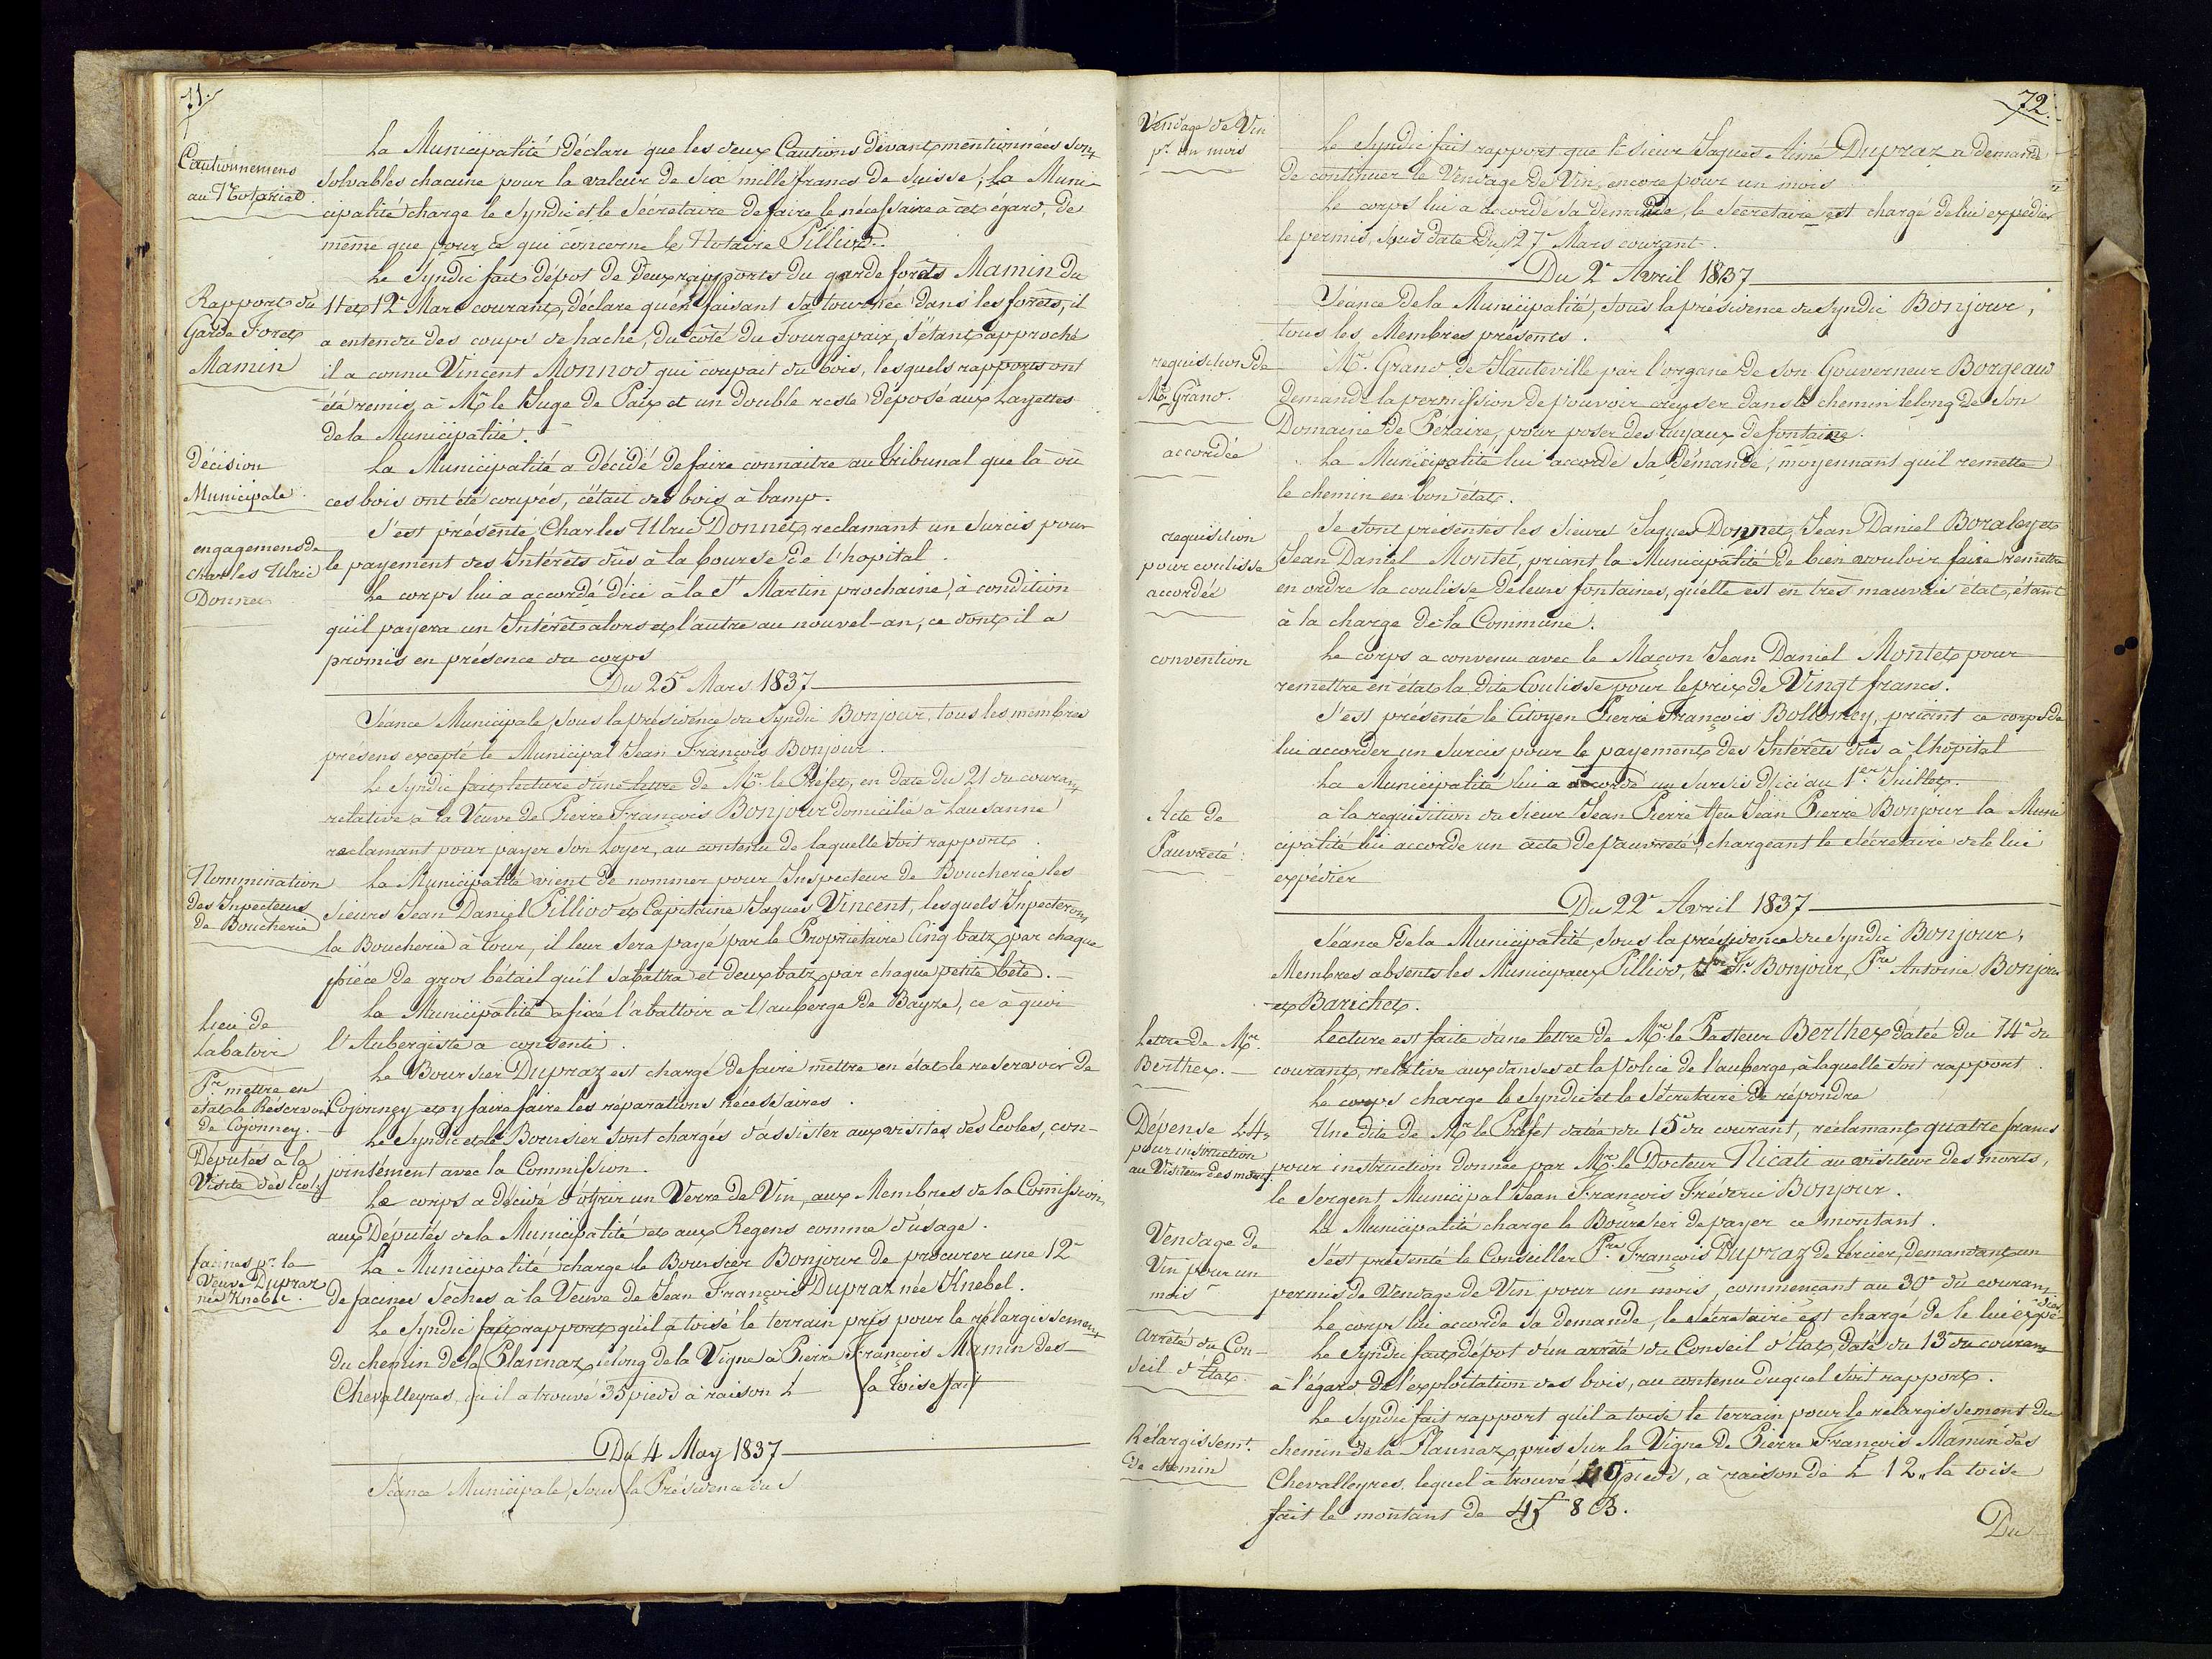 71.
Cautionnemens
au Notariad.
La Municipalité déclare que les deux Cautions devant mentionnées sont
solvables chacune pour la valeur de Six mille francs de Suisse; La Muni-
cipalité charge le Syndic et le Sécretaire de faire le nécessaire à cet égard, de
même que pour ce qui concerne le Notaire Pilliod.
Rapport du
Garde Foret
Mamin
Le Syndic fait dépos de deux rapports du garde forêts Mamin du
11 et 12e Mars courant, déclare qu'en faisant sa tournée dans les forrêts, il
a entendu des coups de hache, du côté du Fourgepaix, s'étant approché
il a connu Vincent Monnod qui coupait du bois, lesquels rapports ont
été remis à Mr le Juge de Paix et un double reste déposé aux Layettes
de la Municipalité.
Décision
Municipale.
La Municipalité a décidé de faire connaitre au Tribunal que là où
ces bois ont été coupés, c'était des bois à bamp.
engagemens de
Charles Ulric
Donnet
S'est présenté Charles Ulric Donnet, reclamant un Surcis pour
le payement des Intérêts dûs à la bourse de l'hopital.
Le corps lui a accordé d'ici à la St Martin prochaine, à condition
qu'il payera un Intérêt alors et l'autre au nouvel-an, ce dont il a
promis en présence du corps
Du 25e Mars 1837
Séance Municipale, sous la présidence du Syndic Bonjour, tous les membres
présens excepté le Municipal Jean François Bonjour.
Le Syndic fait lecture d'une lettre de Mr. le Préfet, en date du 21 du courant
relative à la Veuve de Pierre François Bonjour domicilié à Lausanne
reclamant pour payer son Loyer, au contenu de laquelle soit rapport.
Nommination
des Inpecteurs
de Boucherie
La Municipalité vient de nommer pour Inspecteur de Boucherie les
Sieurs Jean Daniel Pilliod et Capitaine Jaques Vincent, lesquels Inpecteront
la Boucherie à tour, il leur sera payé par le Propriétaire Cinq batz par chaque
pièce de gros bétail qu'il s'abattra et deux batz par chaque petite bête.
Lieu de
Labatoir
La Municipalité a fixé l'abattoir à l'auberge de Bayze, ce à quoi
l'Aubergiste a consenti.
Pr mettre en
état le Réservoir
de Cojonney.
Le Boursier Dupraz est chargé de faire mettre en état le reservoir de
Cojonney et y faire faire les réparations nécessaires.
Députés à la
Visite des Ecoles
Le Syndic et le Boursier sont chargés d'assister aux visites des Ecoles, con-
jointément avec la Commission.
Le corps a décidé d'offrir un Verre de Vin, aux Membres de la Comission,
aux Députés de la Municipalité et aux Regens comme d'usage.
facines pr. la
Veuve Dupraz
née Knéble.
La Municipalité charge le Boursier Bonjour de procurer une 12e
de facines sèches à la Veuve de Jean François Dupraz née Knebel.
Le Syndic fait rapport qu'il a toisé le terrain pris pour le rélargissement
du chemin de la Plannaz, le long de la Vigne à Pierre François Mamin des
Chevalleyres, qu'il a trouvé 35 pieds à raison L la toise fait
Du 4 May 1837
Séance Municipale, sous la Présidence du S
72.
Vendage de Vin
pr. un mois
Le Syndic fait rapport que le sieur Jaques Aimé Dupraz a demandé
de continuer le Vendage de Vin, encore pour un mois
Le corps lui a accordé sa demande, le Secretaire est chargé de lui expédier
le permis, sous date du 27e Mars courant.
Du 2e Avril 1837
Séance de la Municipalité, sous la présidence du Syndic Bonjour,
tous les Membres présents.
requisition de
Mr. Grand.
Mr. Grand de Hauteville par l'organe de son Gouverneur Borgeaud
demande la permission de pouvoir creuser dans le chemin le long de son
Domaine de Pézaire, pour poser des tuyaux de fontaine.
accordée
La Municipalité lui accorde sa demande, moyennant qu'il remette
le chemin en bon état.
requisition
pour coulisse
accordée
Se sont présentés les Sieurs Jaques Donnet, Jean Daniel Boraley et
Jean Daniel Montet, priant la Municipalité de bien vouloir faire remettre
en ordre la coulisse de leurs fontaines, qu'elle est en très mauvais état, étant
à la charge de la Commune.
convention
Le corps a convenu avec le Maçon Jean Daniel Montet pour
remettre en état la dite Coulisse pour le prix de Vingt francs.
S'est présenté le Citoyen Pierre François Bollomey, priant ce corps de
lui accorder un Surcis pour le payement des Intérêts dûs à l'hôpital
La Municipalité lui a accordé un Surcis d'ici au 1er. Juillet.
Acte de
Pauvreté.
à la requisition du Sieur Jean Pierre feu Jean Pierre Bonjour la Muni
cipalité lui accorde un acte de pauvreté, chargeant le Sécretaire de le lui
expédier
Du 22e Avril 1837
Séance de la Municipalité, sous la présidence du Syndic Bonjour,
Membres absents les Municipaux Pilliod, Fs. Bonjour, Pre Antoine Bonjour
et Barichet.
Lettre de Mr.
Berthex.
Lecture est faite d'une lettre de Mr. le Pasteur Berthex datée du 14e du
courant, relative aux danses et la Police de l'auberge, à laquelle soit rapport.
Le corps charge le Syndic et le Sécretaire de répondre
Dépense L4,,
pour instruction
au Visiteur des morts.
Une dite de Mr. le Préfet datée du 15e du courant, réclamant quatre francs
pour instruction donnée par Mr. le Docteur Nicati au visiteur des morts,
le Sergent Municipal Jean François Fréderic Bonjour.
La Municipalité charge le Boursier de payer ce montant.
Vendage de
Vin pour un
mois
S'est présenté le Conseiller Pre François Dupraz de Lercier, demandant un
permis de Vendage de Vin pour un mois, commençant au 30e du courant.
Le corps lui accorde sa demande, le sécretaire est chargé de le lui expé-
dier.
Arrêté du Con-
seil d'Etat.
Le Syndic fait dépot d'un arrêté du Conseil d'Etat, daté du 13 du courant
à l'égard de l'exploitation des bois, au contenu duquel soit rapport.
Rélargissemt.
de chemin
Le Syndic fait rapport qu'il a toisé le terrain pour le relargissement du
chemin de la Plannaz, pris sur la Vigne de Pierre François Mamin des
Chevalleyres, lequel a trouvé 40 pieds, à raison de L 12,, la toise
fait le montant de 4f 8 B.
Du